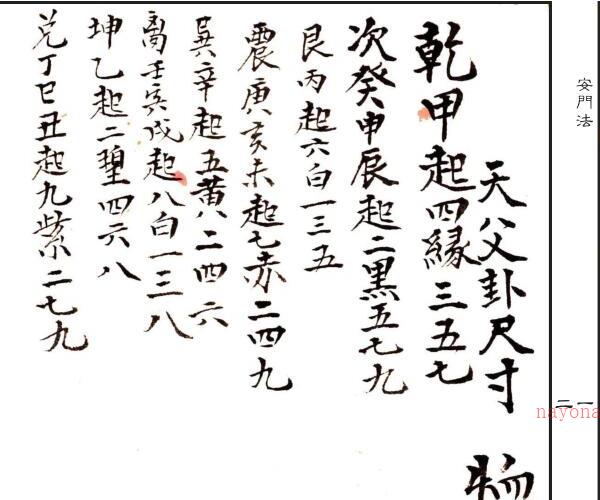 安門法
二一
nayona
天父卦尺寸
乾甲起四緣三五七
次癸申辰起二黑五七九
艮丙起六白一三五
震庚亥未起七赤二四九
巽辛起五黃二四六
离壬寅戌起八白一三八
坤乙起二 四六八
兑丁巳丑起九紫二七九